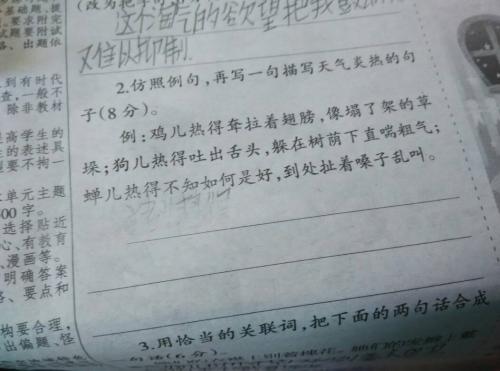 这不争气的欲望把我
难以抑制
2.仿照例句,再写一句描写天气炎热的句
子(8分)。
例:鸡儿热得耷拉着翅膀,像塌了架的草
垛;狗儿热得吐出舌头,躲在树荫下直喘粗气;
蝉儿热得不知如何是好,到处扯着嗓子乱叫。
3.用恰当的关联词,把下面的两句话合成
一句话(6分)。
基础题、提
要求附完
试题要附试
、出题依
到有时代
查,一般不
除非教材
提高学生的
生的表述具
题要不拘一
本单元主题
00字。
选择贴近
心、有教育
、漫画等。
明确答案
、要点和
构要合理,
出偏题、怪